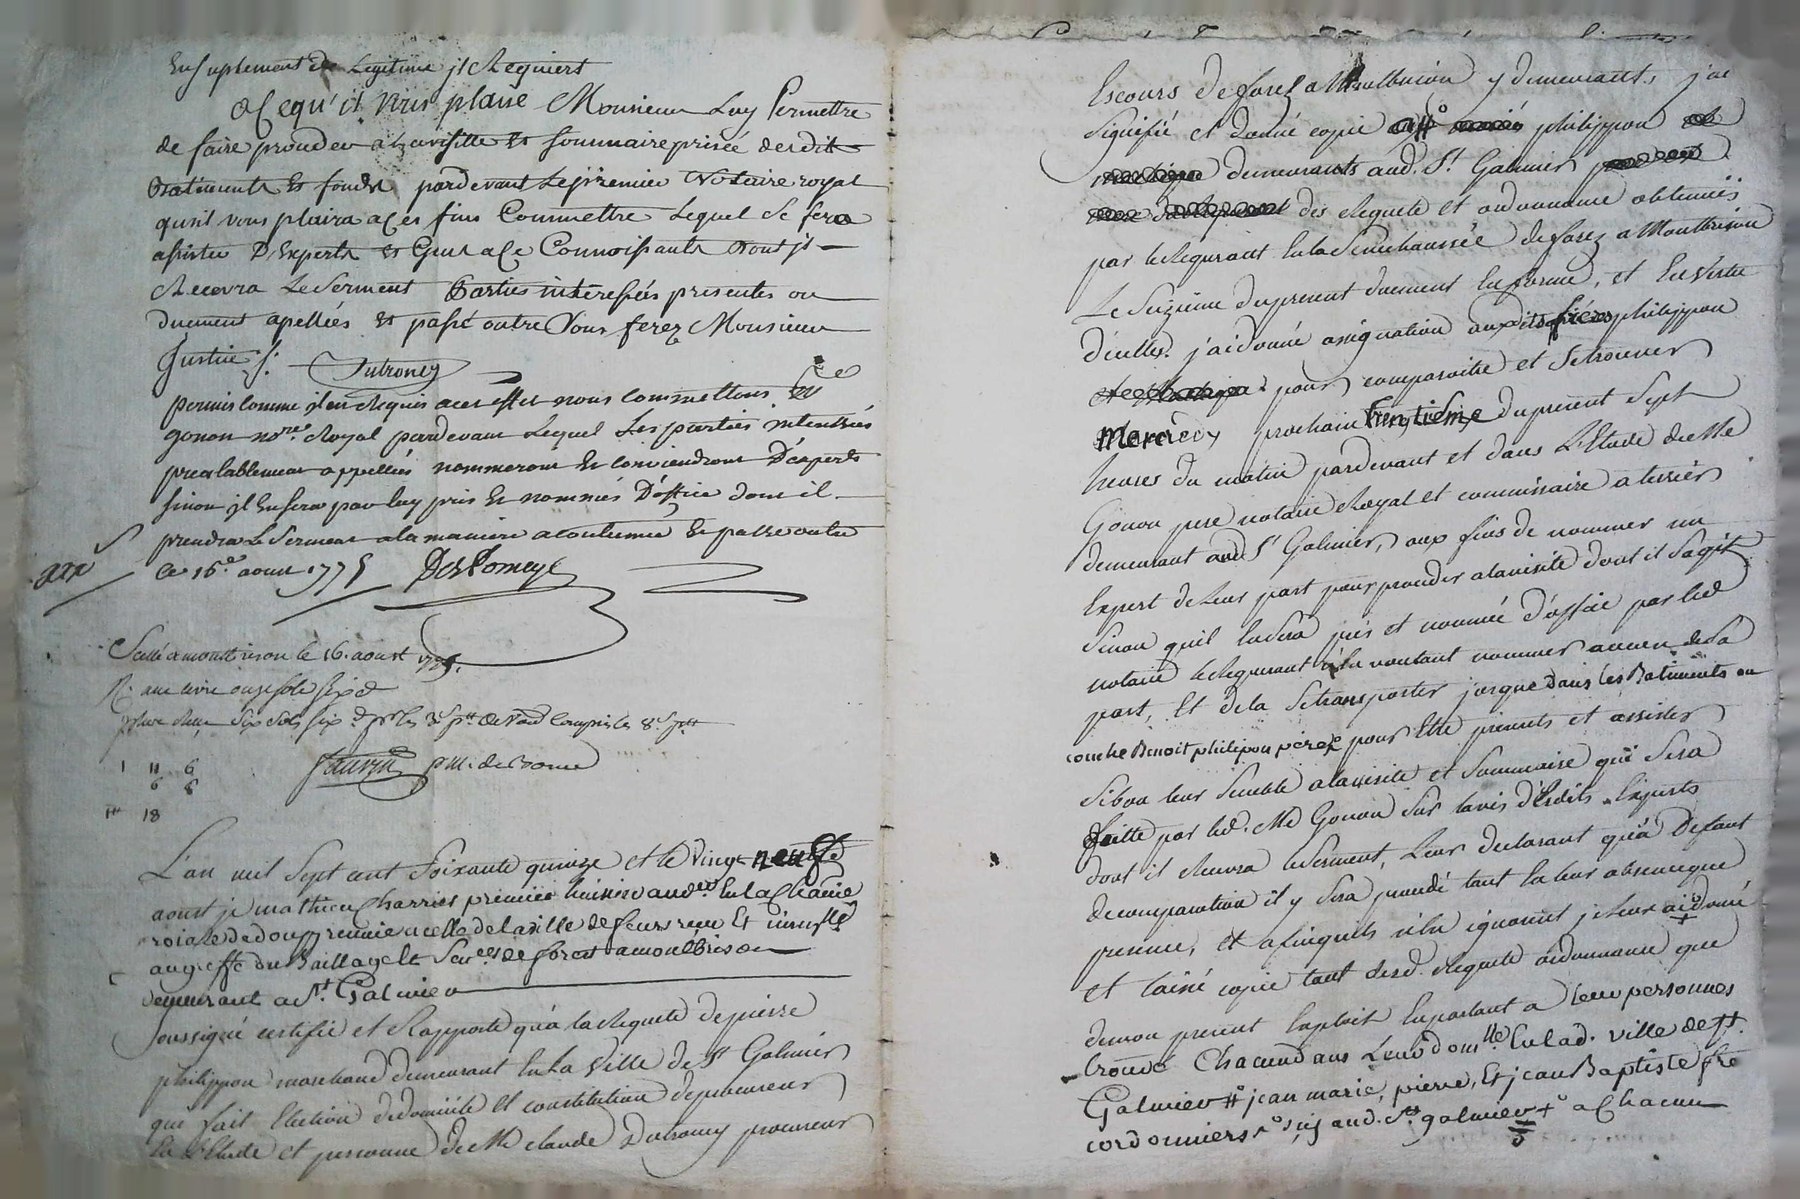 En suplement de Legitime jl Requiert
a Ce qu'il vous plaise Monsieur Luy Permettre
de faire proceder a la visitte et sommaire prisée desdits
Batiments et fonds, pardevant Le premier Notaire royal
qu'il vous plaira a ces fins Commettre Lequel Se fera
assister D'Experts et Gens a Ce Connoissants dont jl
Recevra Le Serment Parties interessées presentes ou
duement apellées et passé outre Vous ferez Monsieur
Justice ./. Dutroncy
permis comme jl en Requis a cet effet nous Commettons Me
gonon nore Royal pardevant Lequel Les parties interessées
prealablement appellées nommeront et conviendront D'experts
sinon jl En sera par luy pris et nommés D'office dont il
prendra Le Serment a la maniere acoutumée et passé outre
Ce 16e aoust 1775 DesPomeys
Scellé a montbrison le 16. aoust 1775.
R. une livre onze sols six d
plus Six Sols six d pr les 3 s. pr ll de compris les 8 s. pr ll
1 11 6
6 6
1ll 18
L'an mil Sept cent Soixante quinze et le Vingt neuf
aoust je mathieu Charries premier huissier aud. En la Chatnie
roiale de donzy reunie a celle de la ville de feurs recu Et immllé
au greffe du Baillage Et Senée de forest a montbrison
demeurant a St. Galmier
soussigné certifie et Rapporte qu'a la Requete de pierre
philippon marchand demeurant En La Ville de St Galmier
qui fait Election de domicile et constitution de procureur
En L'Etude et personne de Me claude Dutroncy procureur
Es cours de forez a Montbrison y demeurant, j'ai
Signifié et donné copie a philippon
demeurants aud. St Galmier
des Requete et ordonnance obtenües
par le Requerant En la Senechaussée de forez a Montbrison
Le Seizieme du present duement En forme, et En Vertu
d'icelles. j'ai donné assignation auxdits frères philippon
pour comparoitre et Se trouver
Mercredy prochain trentième du present Sept
heures du matin pardevant et dans L'Etude de Me
Gonon pere notaire Royal et commissaire a terrier
demeurant aud St Galmier, aux fins de nommer un
Expert de Leur part pour proceder a la visite dont il S'agit
Sinon qu'il En Sera pris et nommé d'office par led
notaire le Requerant n'En voulant nommer aucun de Sa
part, Et de la Se transporter jusque dans les Batiments ou
couche Benoit philipon père pour Etre presents et assister
Si bon leur Semble a la visite et Sommaire qui Sera
faitte par led. Me Gonon Sur l'avis d'Esdits Experts
dont il Recevra le Serment, Leur declarant qu'a Defaut
de comparution il y Sera procedé tant En leur absence que
presence, et a fin qu'ils n'En ignorent je leur ai donné
et laissé copie tant desd. Requete ordonnance que
demon present Exploit En parlant a leur personnes
trouvé Chacun dans Leur domlle En lad. ville de St.
Galmier # jean marie, pierre, Et jean Baptiste fre
cordonniers aud. St. galmier + a Chacun